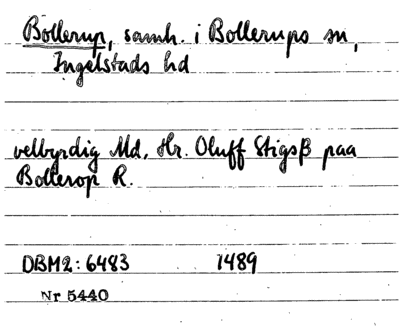 Bollerup, samh. i Bollerups sn,
Ingelstads hd
velbyrdig Md, Hr. Oluff Stigsß paa
Bollerop R.
DBM2: 6483 1489
Nr 5440